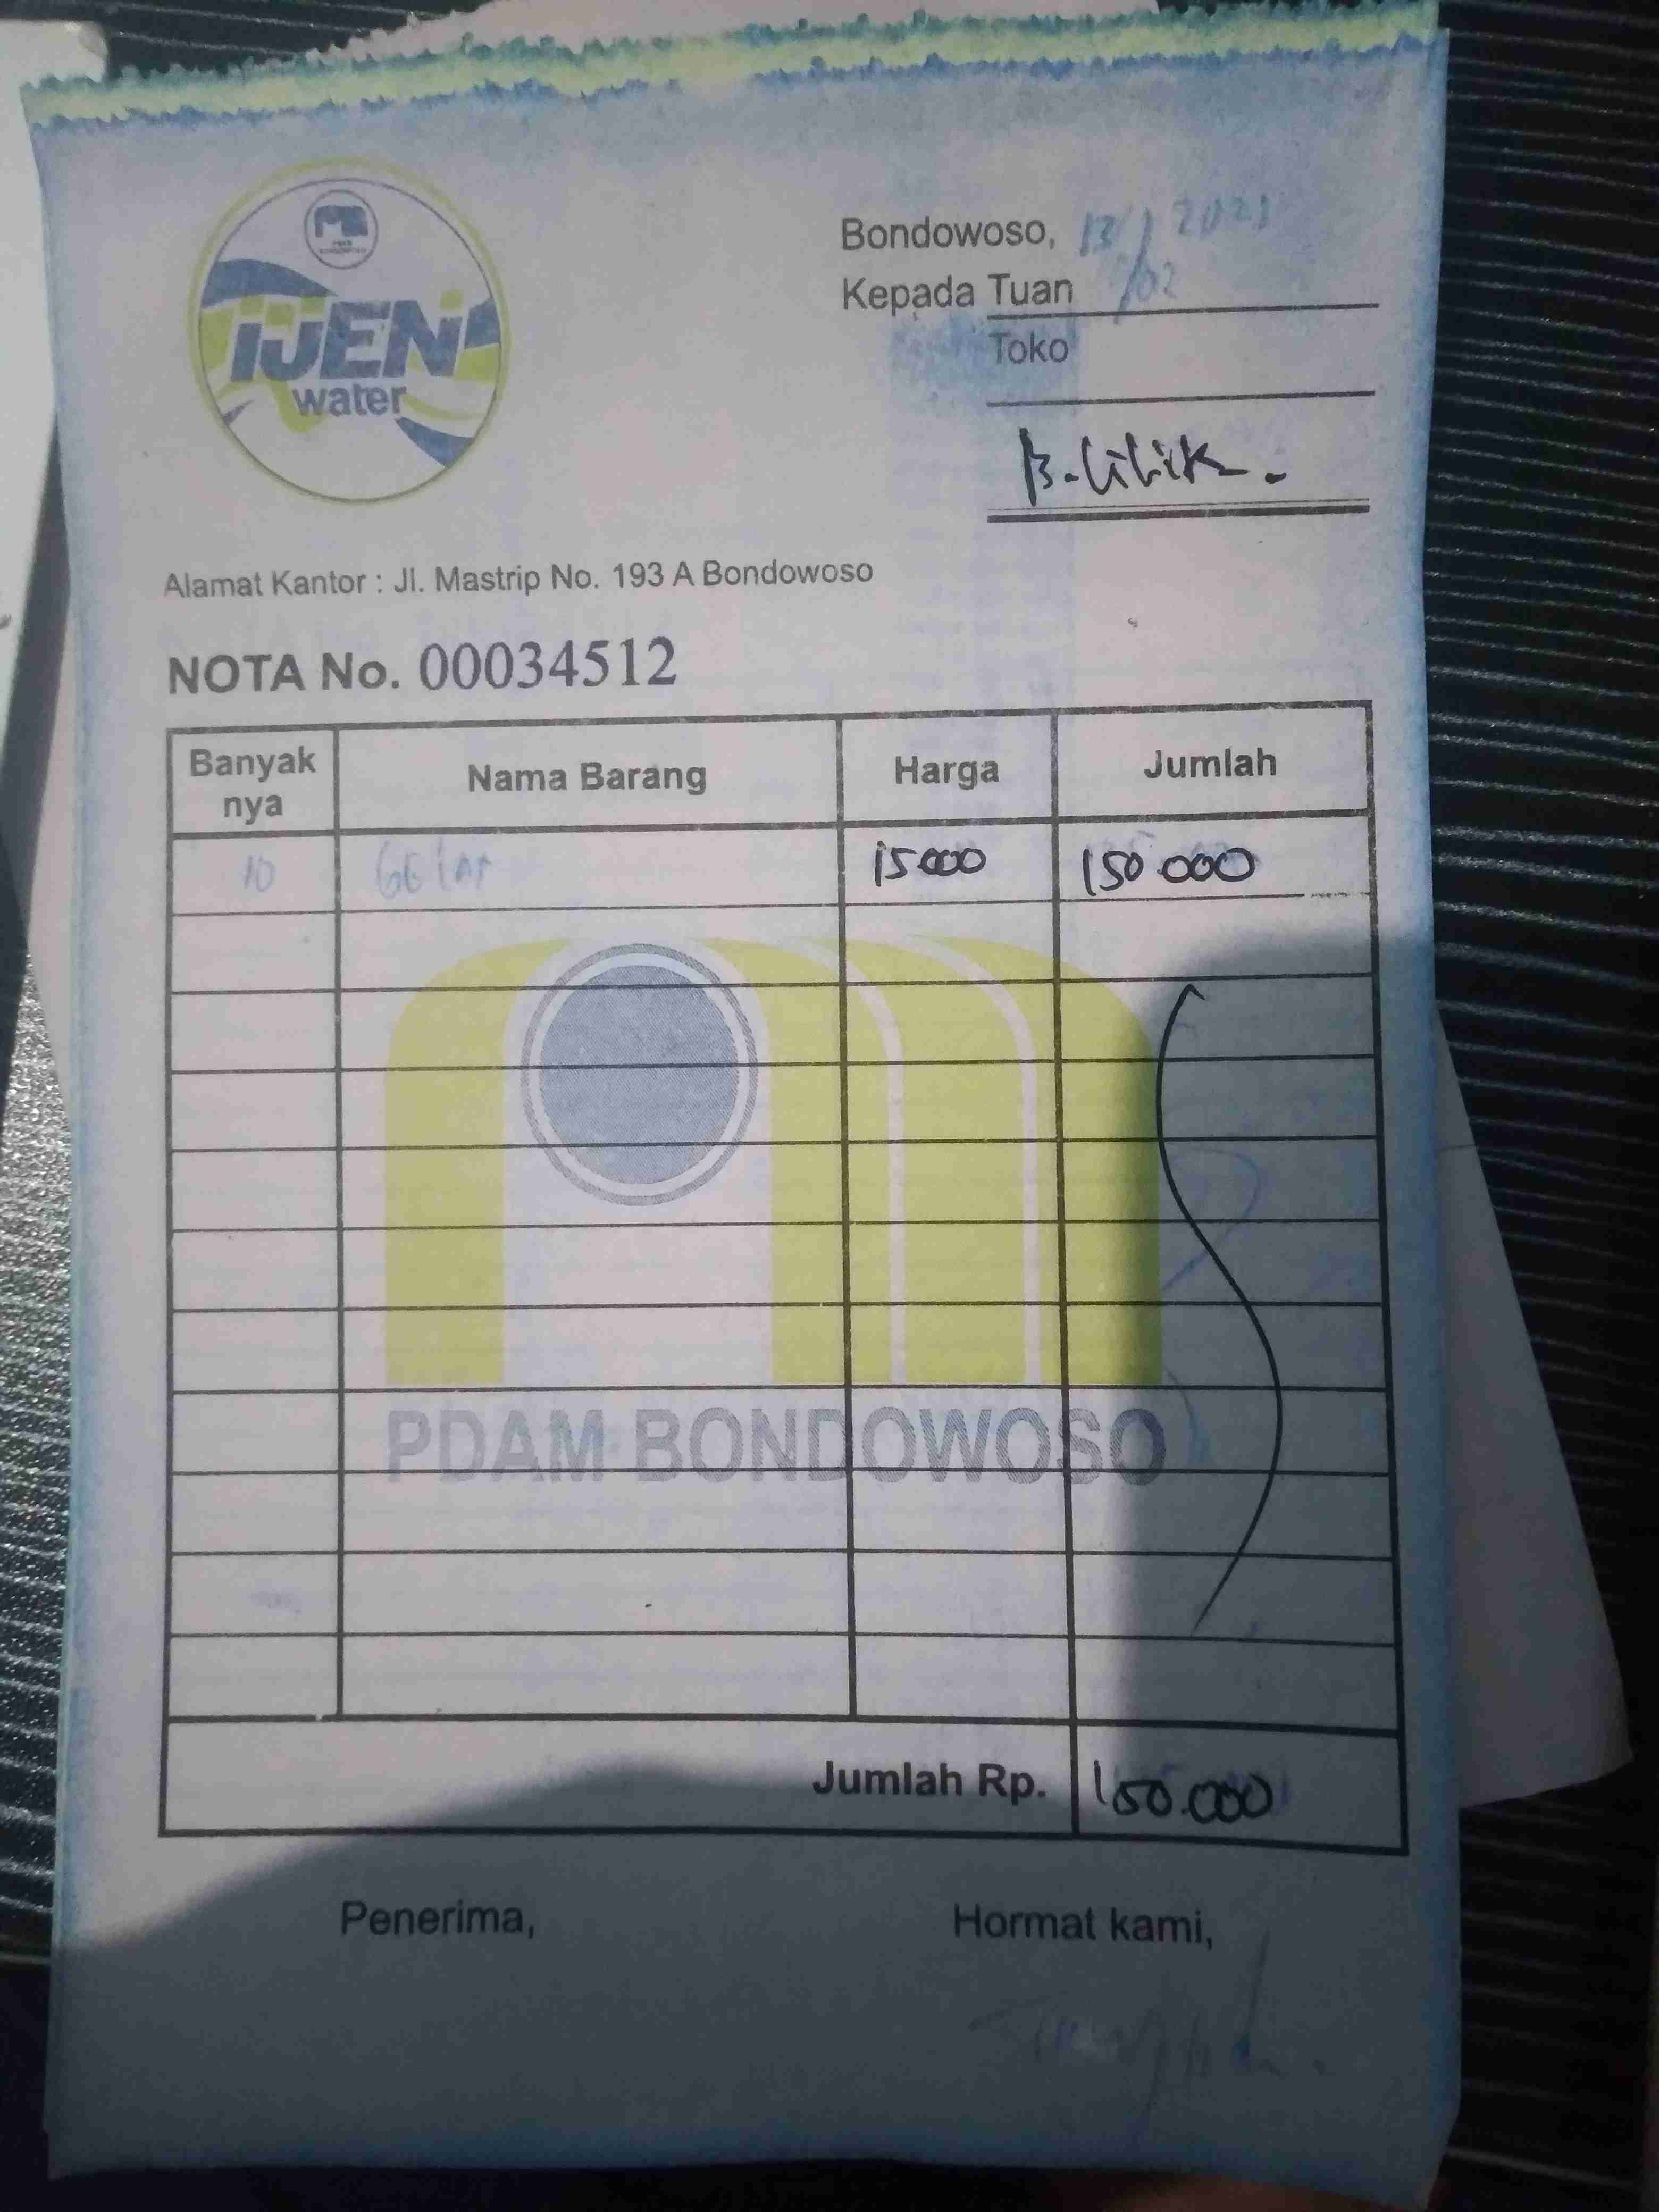 IJEN
water
Bondowoso, 13/02 2021
Kepada Tuan
Toko
B. Lilik.
Alamat Kantor : Jl. Mastrip No. 193 A Bondowoso
NOTA No. 00034512
Banyak nya Nama Barang Harga Jumlah
10 Gelas 15000 150.000
PDAM BONDOWOSO
Jumlah Rp. 150.000
Penerima, Hormat kami,